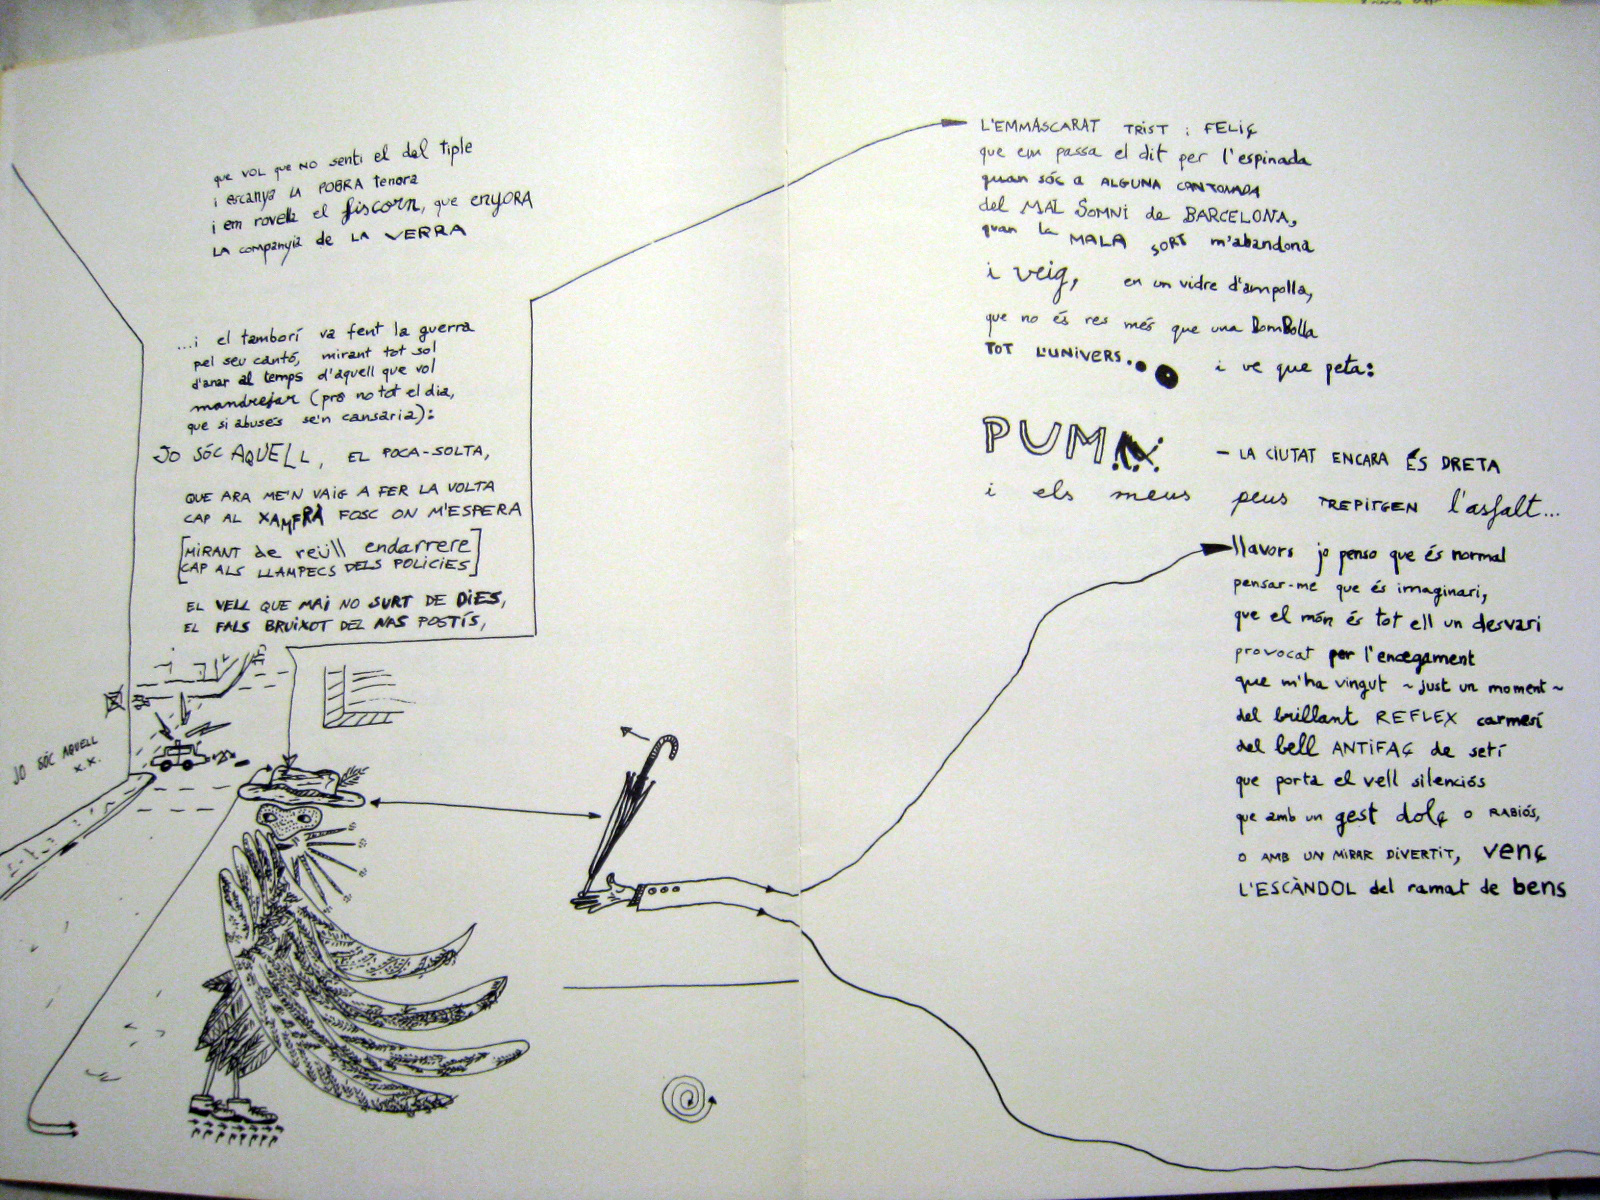 que VOL que NO senti el del tiple
i escanya LA POBRA tenora
i em rovella el fiscorn, que enyORA
LA companyia de LA VERRA
...i el tamborí va fent la guerra
pel seu cantó, mirant tot sol
d'anar al temps d'aquell que vol
mandrejar (pro no tot el dia,
que si abusés se'n cansaria):
JO SÓC AQUELL, EL POCA-SOLTA,
QUE ARA ME'N VAIG A FER LA VOLTA
CAP AL XAMFRÀ FOSC ON M'ESPERA
[MIRANT de reüll endarrere
CAP ALS LLAMPECS DELS POLICIES]
EL VELL QUE MAI NO SURT DE DIES,
EL FALS BRUIXOT DEL NAS POSTÍS,
JO SÓC AQUELL
x.x.
L'EMMASCARAT TRIST i FELIÇ
que em passa el dit per l'espinada
quan sóc a ALGUNA CANTONADA
del MAL SOMNI de BARCELONA,
quan la MALA SORT m'abandona
i veig, en un vidre d'ampolla,
que no és res més que una BomBolla
TOT L'UNIVERS... i ve que peta:
PUM
- LA CIUTAT ENCARA ÉS DRETA
i els meus peus TREPITGEN l'asfalt...
llavors jo penso que és normal
pensar-me que és imaginari,
que el món és tot ell un desvari
provocat per l'encegament
que m'ha vingut ~ just un moment ~
del brillant REFLEX carmesí
del bell ANTIFAÇ de setí
que porta el vell silenciós
que amb un gest dolç o RABIÓS,
O AMB UN MIRAR DIVERTIT, venç
L'ESCÀNDOL del ramat de bens